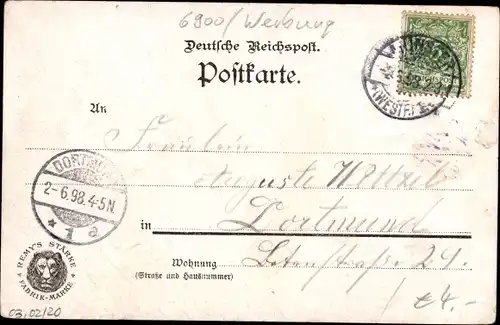 6900/Werbung
Deutsche Reichspost.
Postkarte.
MÜNSTER
(WESTF.)
An
Fräulein
Auguste
DORTMUND
2-6.98.4-5N
* 1 a
in Dortmund
Wohnung
(Straße und Hausnummer)
REMY'S STÄRKE
FABRIK-MARKE
03,02/20
€4.-